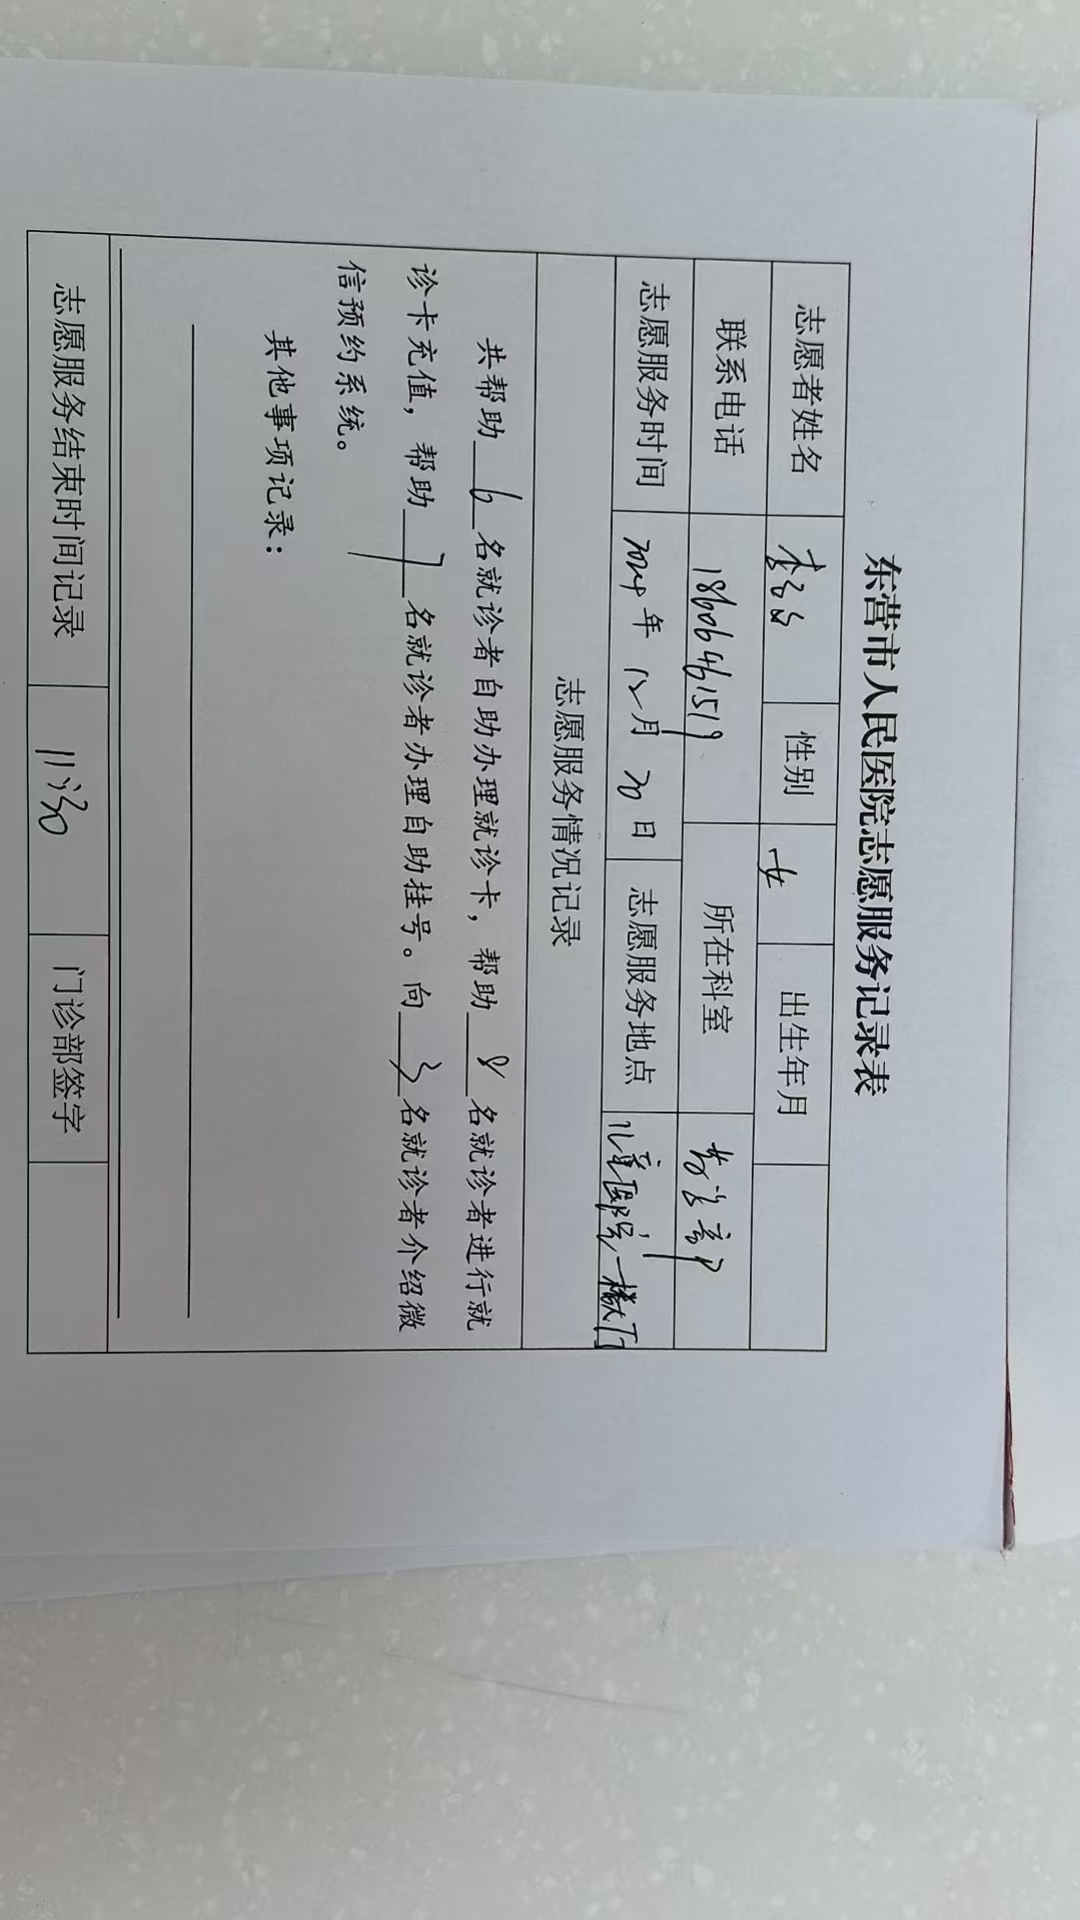 东营市人民医院志愿服务记录表
志愿者姓名 李 性别 女 出生年月
联系电话 18606461519 所在科室
志愿服务时间 2024年12月20日 志愿服务地点 儿童医院一楼大厅
志愿服务情况记录
共帮助 6 名就诊者自助办理就诊卡，帮助 8 名就诊者进行就
诊卡充值，帮助 7 名就诊者办理自助挂号。向 3 名就诊者介绍微
信预约系统。
其他事项记录：
志愿服务结束时间记录 11:30 门诊部签字